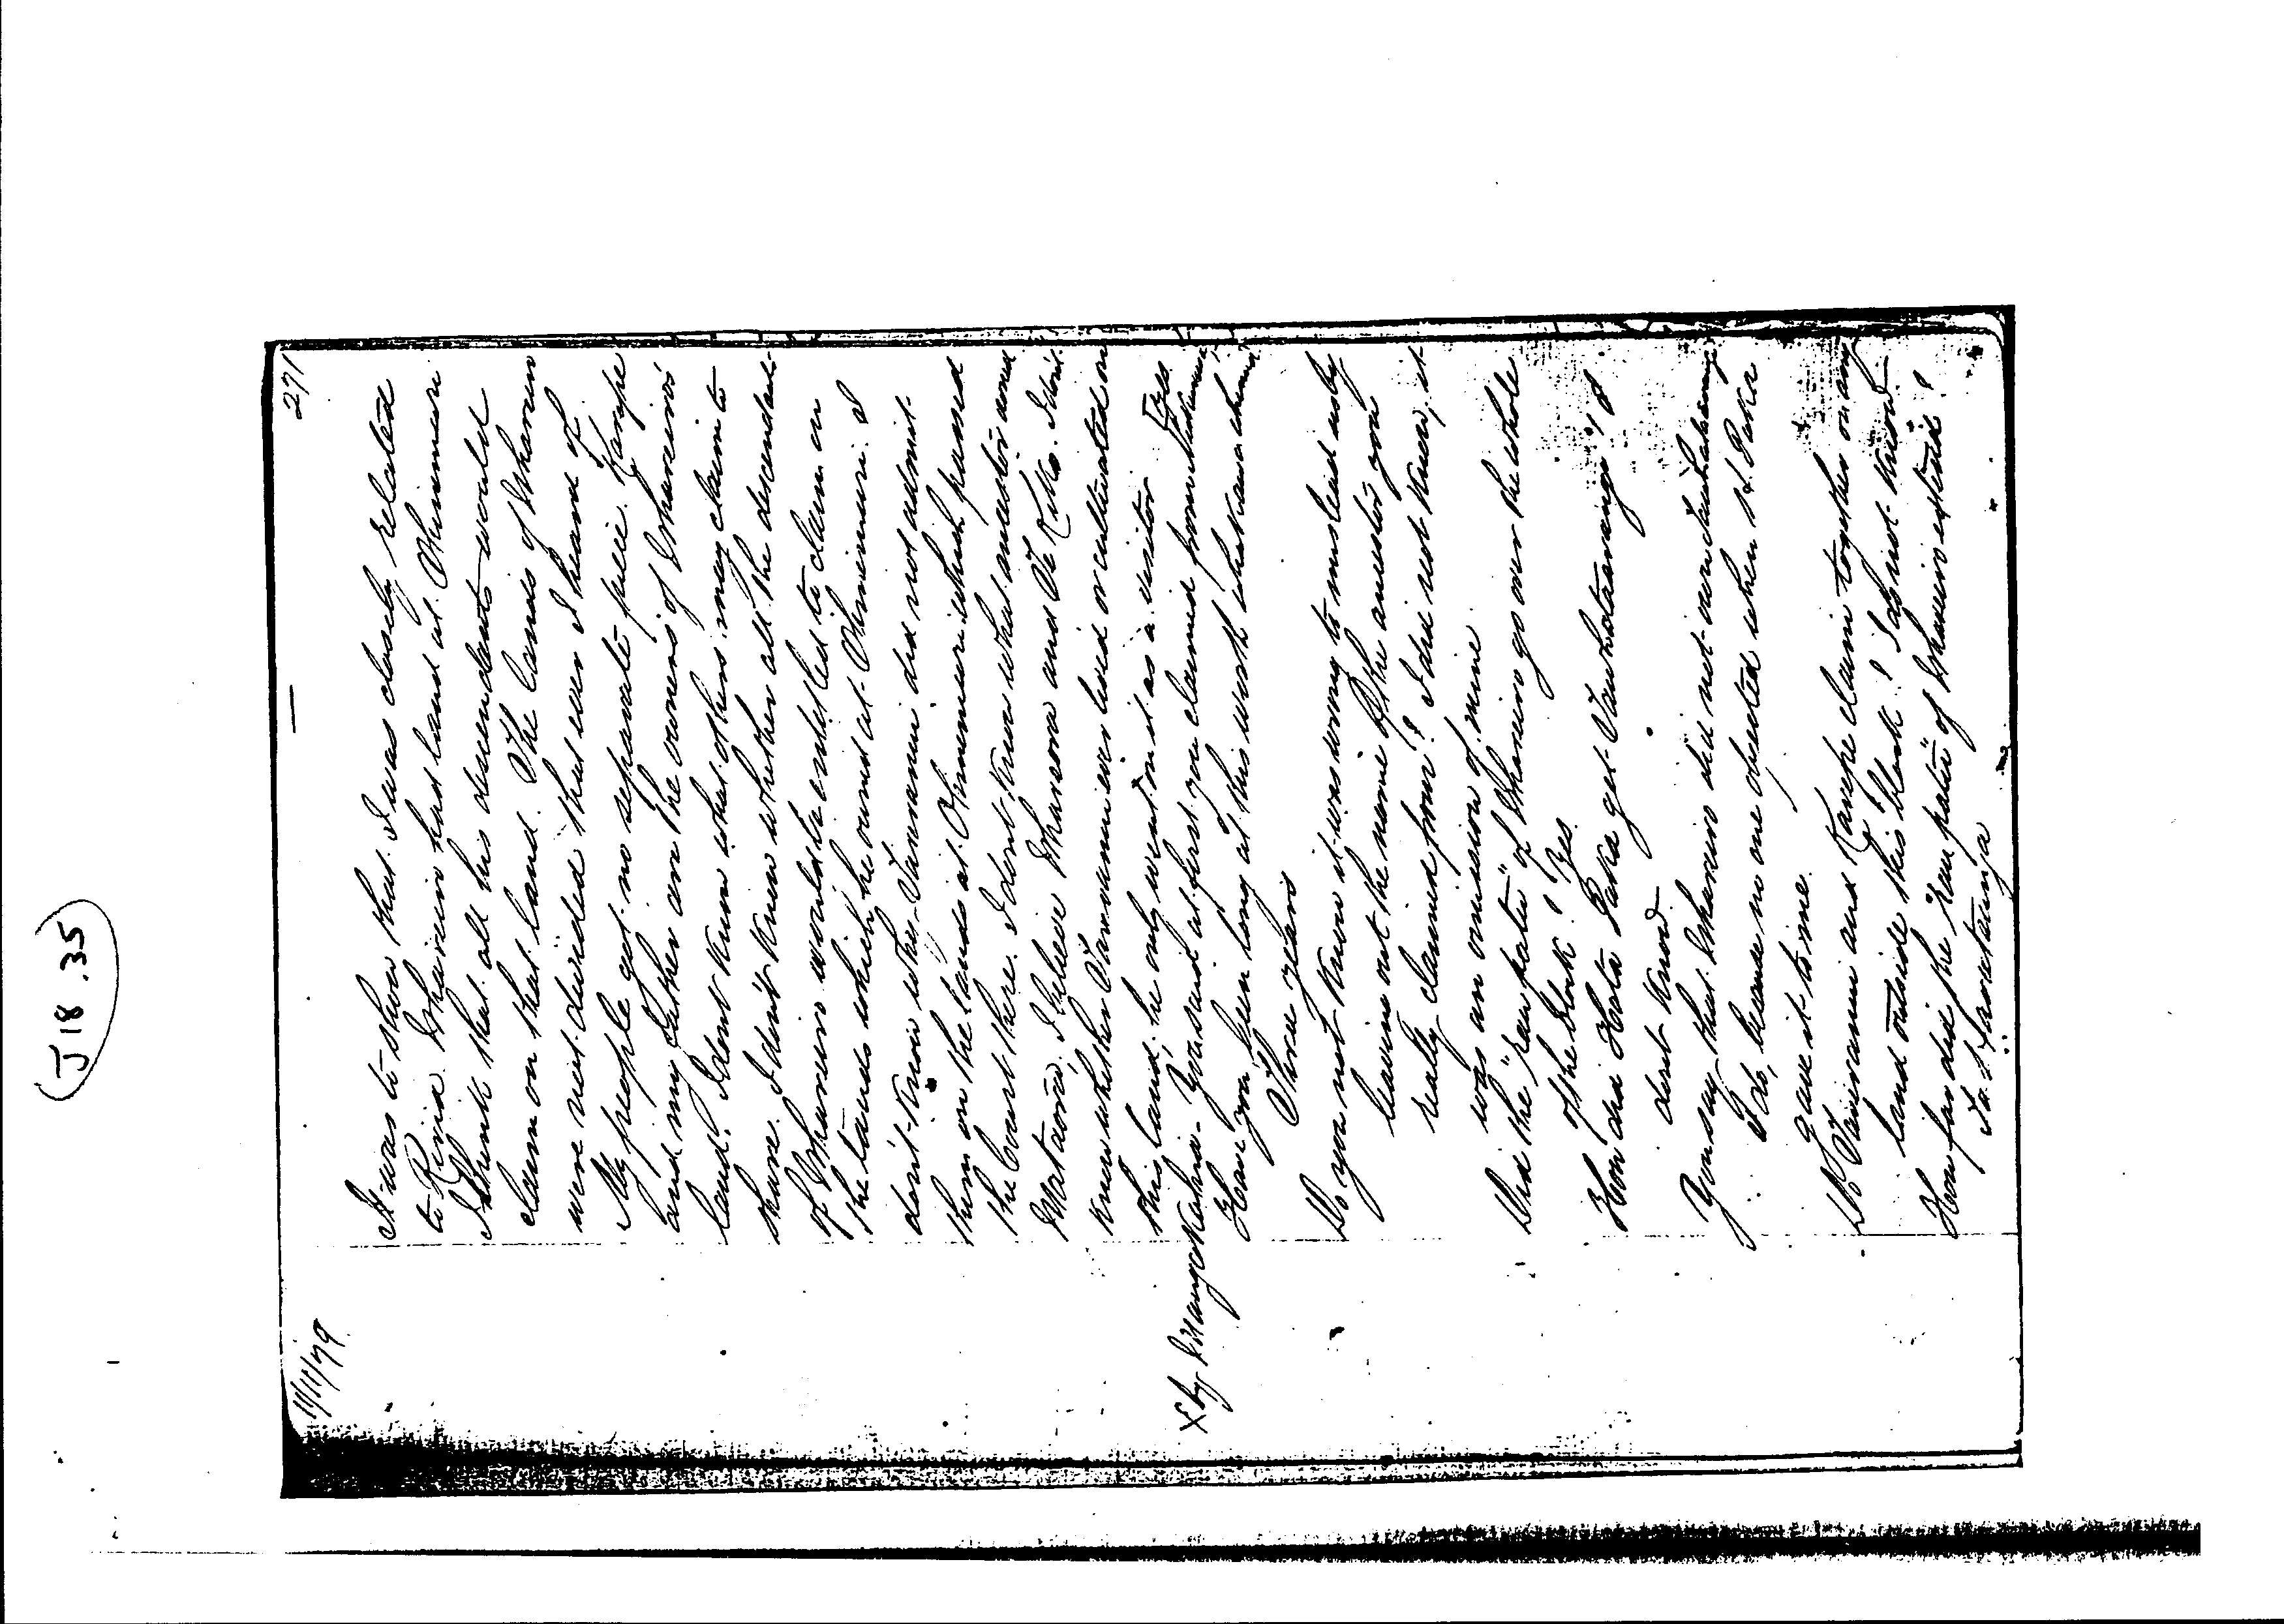 J 18.35
11/11/79
271
It was to shew that I was closely related
to Ripia. Wharewio had land at Ohinemuri
I think that all his descendants would
claim on that land. The lands of Wharewio
were not divided that ever I heard of
My people got no separate piece. Karipe
and my father are the owners of Wharewio's
land. I dont know what others may claim to
share. I don't know whether all the descendants
of Wharewio would be entitled to claim on
the lands which he owned at Ohinemuri. I
don't know why did not admit
them on the lands at Ohinemuri which passed
the Court there. I dont know what ancestor owned
I believe and Te Ruka. I don't
know whether ever lived or cultivated on
this land, he only went on it as a visitor
X by
You said at first you claimed from
Have you been long at this work
Three years
Do you not know it was wrong to mislead us by
leaving out the name of the ancestor you
really claimed from? I did not know, it
was an omission of mine
Did the "rau patu" of Wharewio go over the whole
of the block? Yes.
How did Hota Taka get ? I
dont know
You say that Wharewio did not own
I do, because no one objected when H. Taka
gave it to me.
Do and Karipe claim together on any
land outside this block? I do not know
How far did the "rau patu" of Wharewio extend?
To